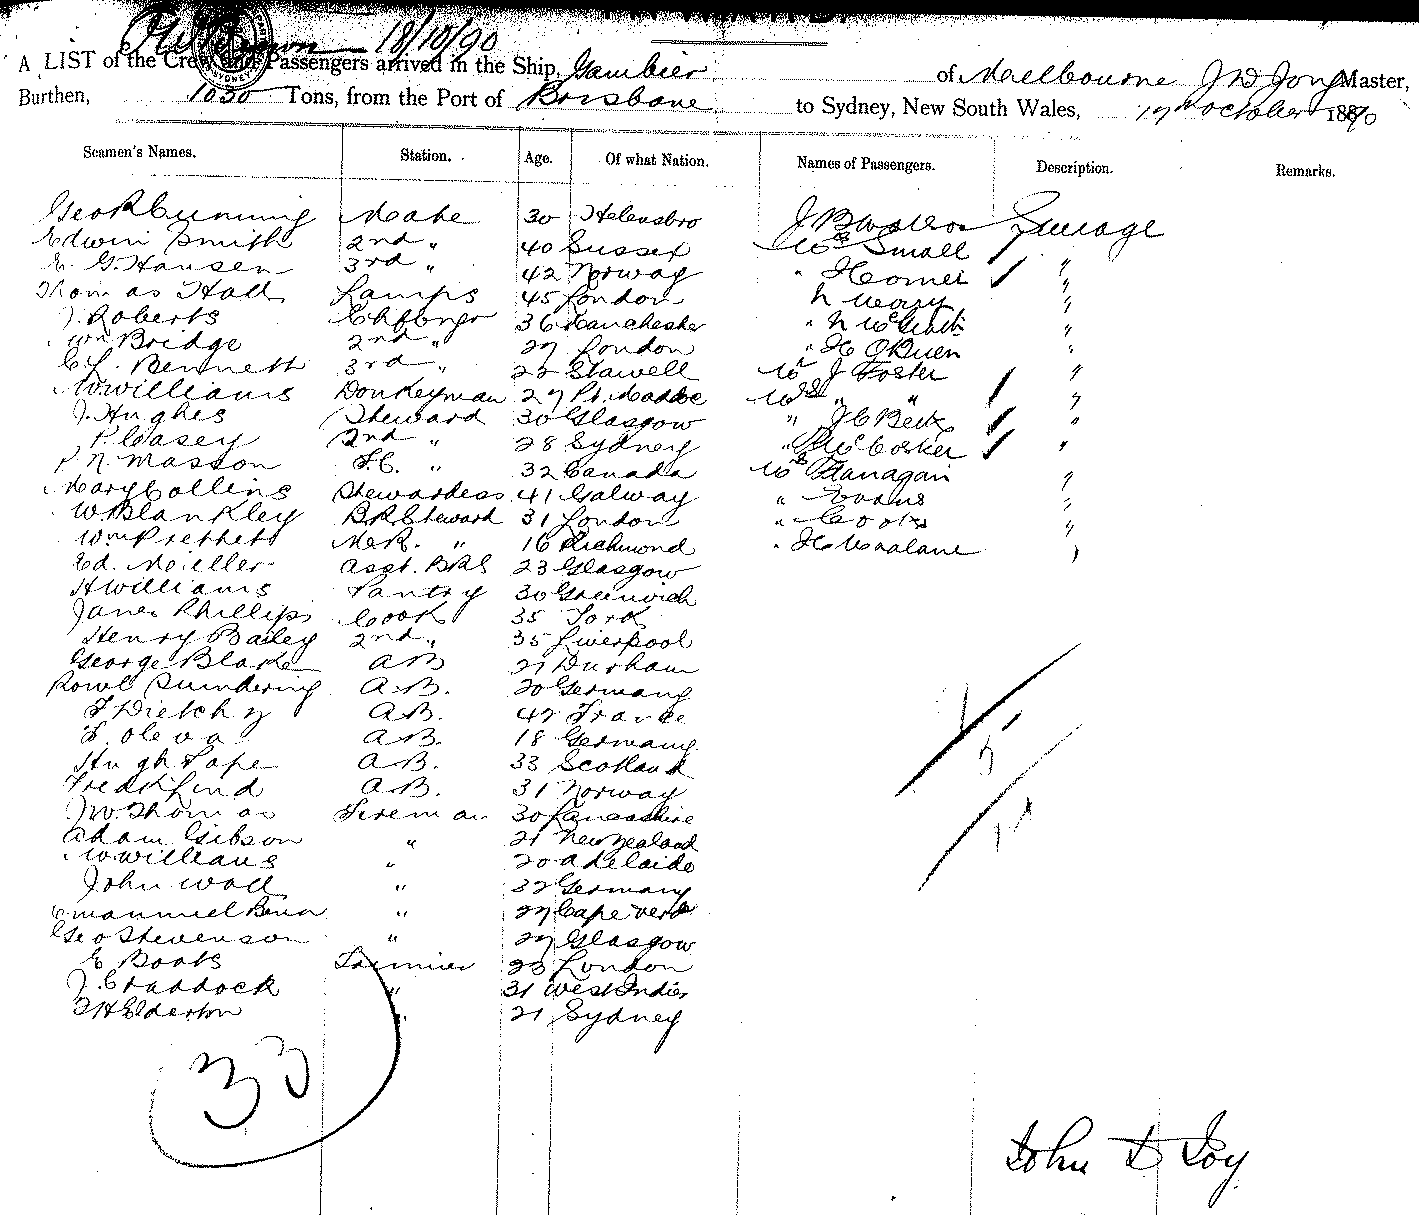 18/10/90
A LIST of the Crew and Passengers arrived in the Ship, Gambier of Melbourne J D Joy Master,
Burthen, 1030 Tons, from the Port of Brisbane to Sydney, New South Wales, 17th October 1890
Seamen's Names. Station. Age. Of what Nation. Names of Passengers. Description. Remarks.
Geo R Cunning Mate 30 Helensbro J B Steerage
Edwin Smith 2nd " 40 Sussex Mrs Small "
E. G. Hansen 3rd " 42 Norway " "
Thomas Hall Lamps 45 London "
J. Roberts 36 Manchester " "
Wm Bridge 2nd " 27 London " O'Brien "
C L. Bennett 3rd " 22 Stawell Mr J Foster "
W. Williams Donkeyman 27 Mrs " " "
J. Hughes Steward 30 Glasgow " J C Beck "
P. Casey 2nd " 28 Sydney " McCosker "
P. N. Masson F.C. " 32 Canada Mrs Flanagan "
Mary Collins Stewardess 41 Galway " Evans "
W. Blankley B.R. Steward 31 London " Cooks "
Wm Prettett M.R. " 16 Richmond " H "
Ed. Moieller Asst. B.R.S 23 Glasgow
H Williams Pantry 30 Greenwich
James Phillips Cook 35 York
Henry Bailey 2nd " 35 Liverpool
George Blake A B 27 Durham
A.B. 20 Germany
F Dietchy A.B. 42 France
A B. 18 Germany
Hugh Pape A B. 33 Scotland
Fredk Lind A.B. 31 Norway
J W. Thomas Fireman 30 Lancashire
Adam Gibson " 21 New Zealand
W. Williams " 20 Adelaide
John Wall " 32 Germany
Emanuel " 27 Cape Verd
Geo Stevenson " 27 Glasgow
E Boats Trimmer 23 London
J. Craddock " 31 West Indies
F H Elderton " 21 Sydney
33
John D Joy